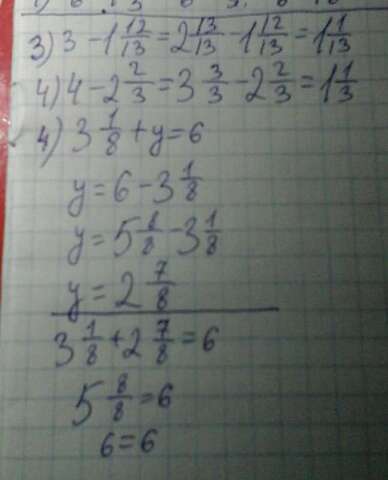 3) 3 - 1 12/13 = 2 13/13 - 1 12/13 = 1 1/13
4) 4 - 2 2/3 = 3 3/3 - 2 2/3 = 1 1/3
4) 3 1/8 + y = 6
y = 6 - 3 1/8
y = 5 8/8 - 3 1/8
y = 2 7/8
3 1/8 + 2 7/8 = 6
5 8/8 = 6
6 = 6